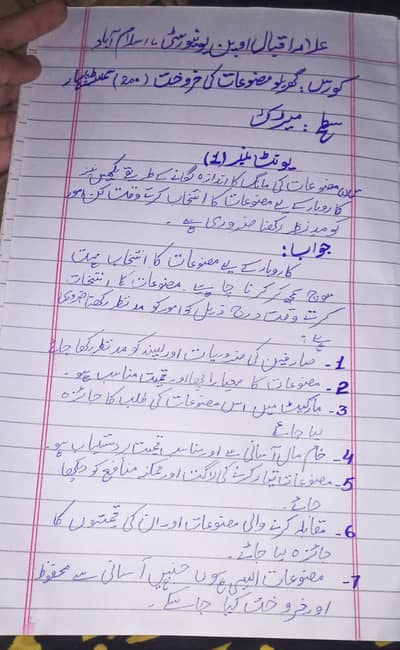 علامہ اقبال اوپن یونیورسٹی، اسلام آباد
کورس: گھریلو مصنوعات کی فروخت (200) سمسٹر بہار
سطح: میٹرک
یونٹ نمبر (1)
مصنوعات کی مانگ کا اندازہ لگانے کے طریقے لکھیں نیز
کاروبار کے لیے مصنوعات کا انتخاب کرتے وقت کن امور
کو مدنظر رکھنا ضروری ہے۔
جواب:
کاروبار کے لیے مصنوعات کا انتخاب بہت
سوچ سمجھ کر کرنا چاہیے۔ مصنوعات کا انتخاب
کرتے وقت درج ذیل امور کو مدنظر رکھنا ضروری
ہے:
1- صارفین کی ضروریات اور پسند کو مدنظر رکھا جائے
2- مصنوعات کا معیار اور قیمت مناسب ہو۔
3- مارکیٹ میں اس مصنوعات کی طلب کا جائزہ
لیا جائے
4- خام مال آسانی سے اور مناسب قیمت پر دستیاب ہو۔
5- مصنوعات تیار کرنے کی لاگت اور منافع کو دیکھا
جائے۔
6- مقابلہ کرنے والی مصنوعات اور ان کی قیمتوں کا
جائزہ لیا جائے۔
7- مصنوعات ایسی ہوں جنہیں آسانی سے محفوظ
اور فروخت کیا جا سکے۔